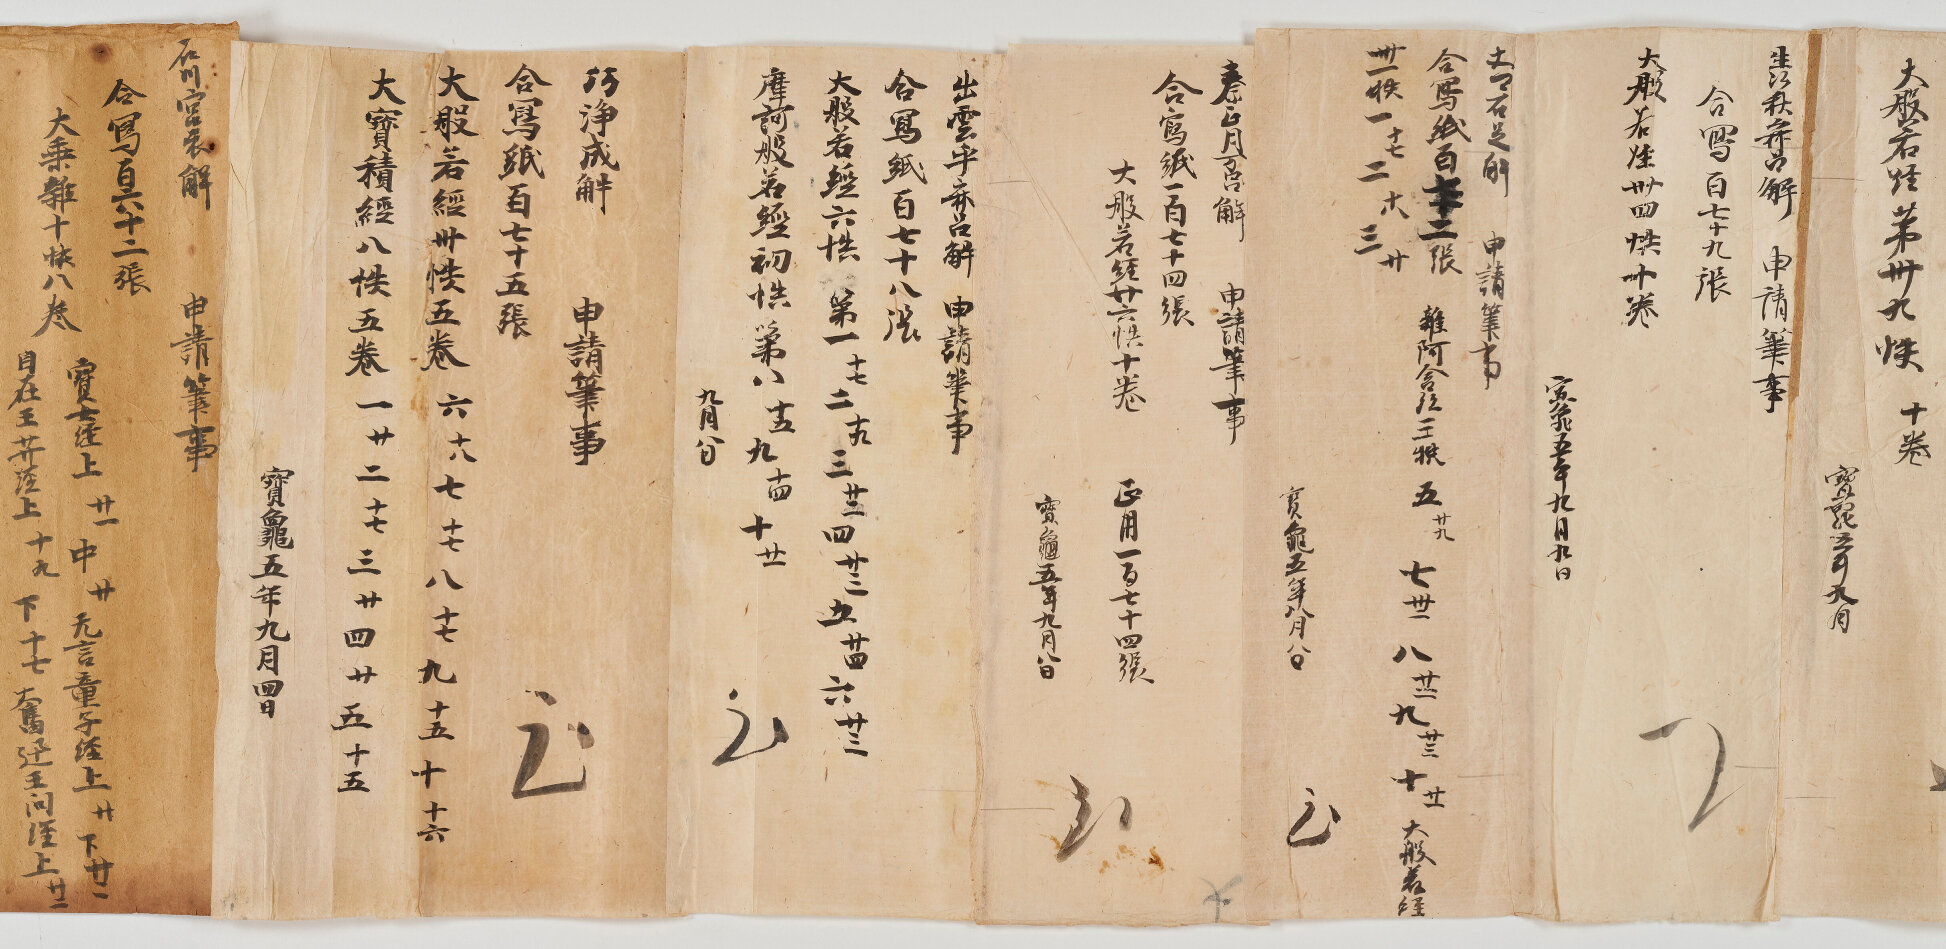 大般若経第卅九帙 十巻
寶龜五年九月
秋麻呂解 申請筆事
合寫百七十九張
大般若経卅四帙十巻
寶龜五年九月九日
石足解 申請筆事
合寫紙百 二張 雜阿含経三帙 五廿九 七卅一 八廿二 九廿三 十廿一 大般若経
卅一帙一十七 二十八 三廿
寶龜五年八月八日
秦正月麻呂解 申請筆事
合寫紙一百七十四張
大般若経廿六帙十巻 正用一百七十四張
寶龜五年九月八日
出雲乎麻呂解 申請筆事
合寫紙百七十八張
大般若經六帙 第一十七 二十九 三廿三 四廿三 五廿四 六廿三
摩訶般若經初帙 第八十五 九十四 十廿一
九月八日
巧淨成解 申請筆事
合寫紙百七十五張
大般若經卅帙五巻 六十八 七十七 八十七 九十五 十十六
大寶積經八帙五巻 一廿 二十七 三廿 四廿 五十五
寶龜五年九月四日
石川宮衣解 申請筆事
合寫百六十二張
大乗雜十帙八巻 寶女経上廿一 中廿 无言童子経上廿 下廿二
自在王菩薩経上十九 下十七 奮迅王問経上廿二